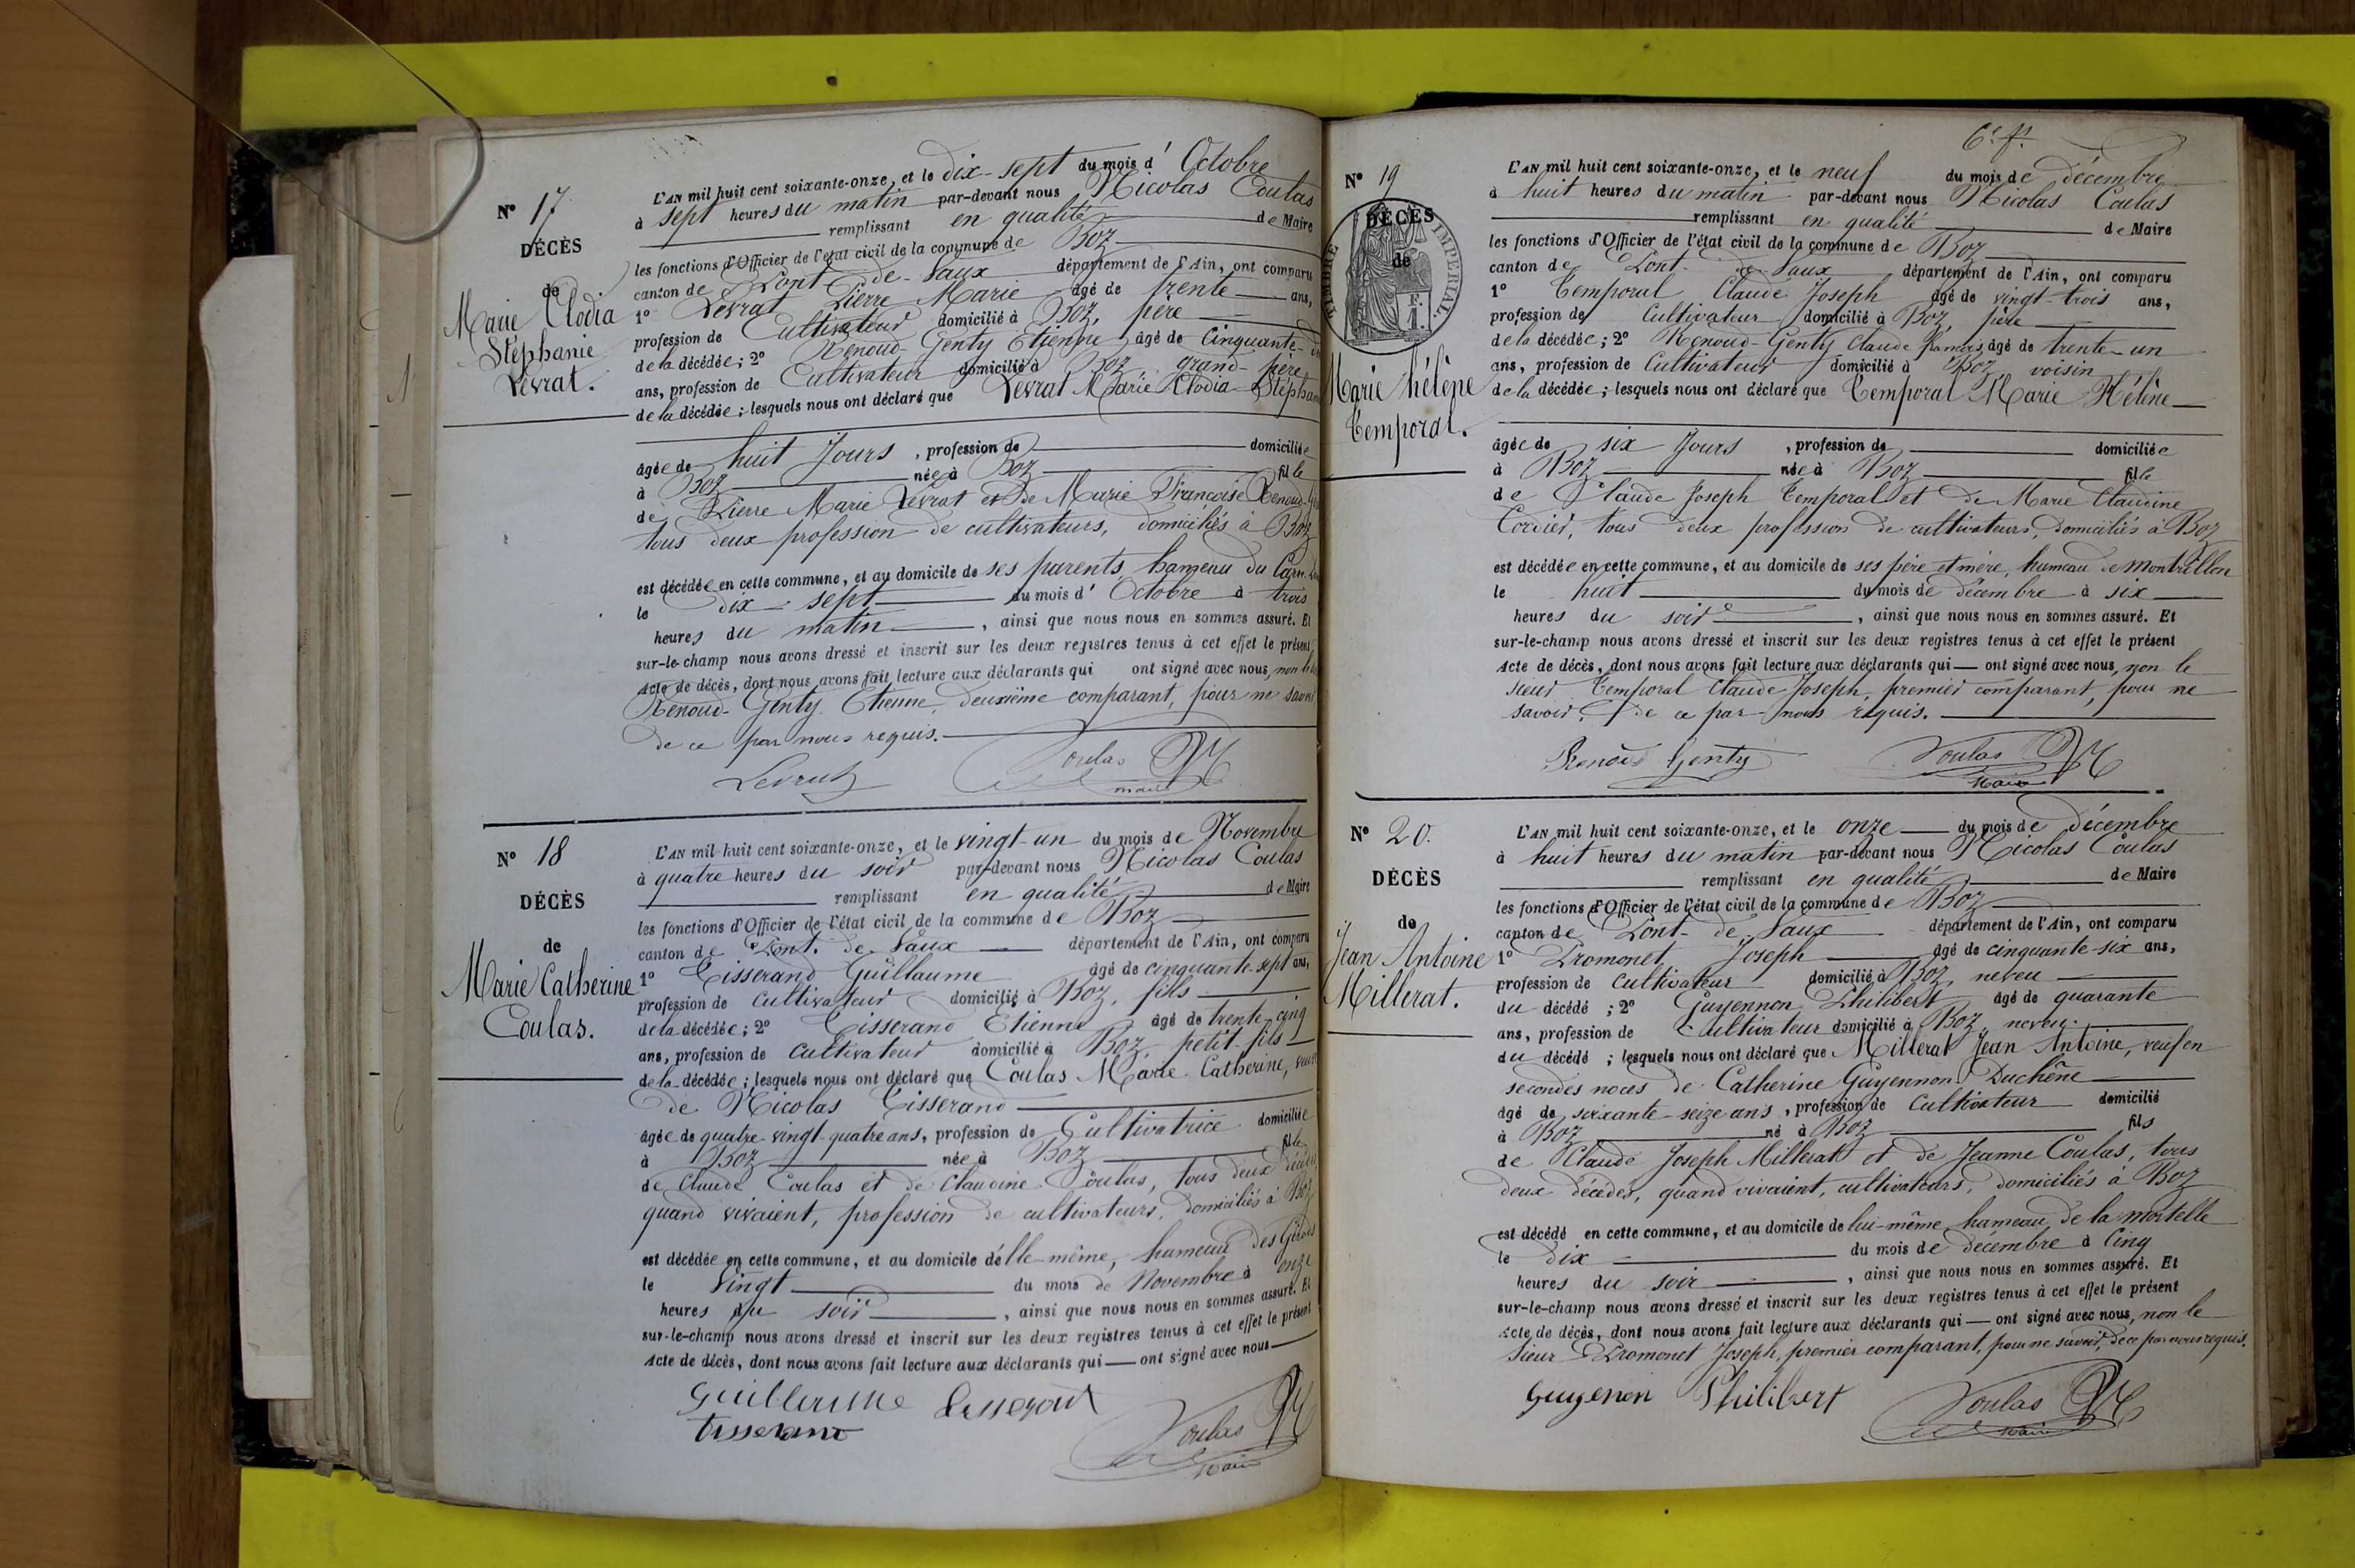 N° 17
DÉCÈS
de
Marie Clodia
Stéphanie
Levrat.
L'AN mil huit cent soixante-onze, et le dix-sept du mois d' Octobre
à sept heures du matin par-devant nous Nicolas Coulas
remplissant en qualité de Maire
les fonctions d'Officier de l'état civil de la commune de Boz
canton de Pont-de-Vaux département de l'Ain, ont comparu
1° Levrat Pierre Marie âgé de trente ans,
profession de Cultivateur domicilié à Boz, père
de la décédée; 2° Renoud-Genty Etienne âgé de Cinquante-
ans, profession de Cultivateur domicilié à Boz grand-père
de la décédée; lesquels nous ont déclaré que Levrat Marie Clodia Stéphan
âgée de huit Jours, profession de domiciliée
à Boz née à Boz fille
de Pierre Marie Levrat et de Marie Françoise Renoud
tous deux profession de cultivateurs, domiciliés à Boz
est décédée en cette commune, et au domicile de ses parents, hameau du
le dix-sept du mois d' Octobre à trois
heures du matin, ainsi que nous nous en sommes assuré. Et
sur-le-champ nous avons dressé et inscrit sur les deux registres tenus à cet effet le présent
Acte de décès, dont nous avons fait lecture aux déclarants qui ont signé avec nous, non le
Renoud-Genty Etienne, deuxième comparant, pour ne savoir
de ce par nous requis.
Levrat Coulas
maire
N° 18
DÉCÈS
de
Marie Catherine
Coulas.
L'AN mil huit cent soixante-onze, et le vingt-un du mois de Novembre
à quatre heures du soir par-devant nous Nicolas Coulas
remplissant en qualité de Maire
les fonctions d'Officier de l'état civil de la commune de Boz
canton de Pont-de-Vaux département de l'Ain, ont comparu
1° Tisserand Guillaume âgé de cinquante-sept ans,
profession de cultivateur domicilié à Boz, fils
de la décédée; 2° Tisserand Etienne âgé de trente-cinq
ans, profession de cultivateur domicilié à Boz, petit-fils
de la décédée; lesquels nous ont déclaré que Coulas Marie Catherine, veuve
de Nicolas Tisserand
âgée de quatre-vingt-quatre ans, profession de Cultivatrice domiciliée
à Boz née à Boz fille
de Claude Coulas et de Claudine Coulas, tous deux décédés
quand vivaient, profession de cultivateurs, domiciliés à Boz
est décédée en cette commune, et au domicile d'elle-même, hameau des
le Vingt du mois de Novembre à onze
heures du soir, ainsi que nous nous en sommes assuré. Et
sur-le-champ nous avons dressé et inscrit sur les deux registres tenus à cet effet le présent
Acte de décès, dont nous avons fait lecture aux déclarants qui ont signé avec nous
Guillaume
Tisserand
Coulas
Maire
6e f.
N° 19
DÉCÈS
de
TIMBRE IMPERIAL
F.
1.
Marie Hélène
Temporal.
L'AN mil huit cent soixante-onze, et le neuf du mois de décembre
à huit heures du matin par-devant nous Nicolas Coulas
remplissant en qualité de Maire
les fonctions d'Officier de l'état civil de la commune de Boz
canton de Pont-de-Vaux département de l'Ain, ont comparu
1° Temporal Claude Joseph âgé de vingt-trois ans,
profession de Cultivateur domicilié à Boz, père
de la décédée; 2° Renoud-Genty Claude François âgé de trente-un
ans, profession de Cultivateur domicilié à Boz voisin
de la décédée; lesquels nous ont déclaré que Temporal Marie Hélène
âgée de six Jours, profession de domiciliée
à Boz née à Boz fille
de Claude Joseph Temporal et de Marie Claudine
Cordier, tous deux profession de cultivateurs, domiciliés à Boz
est décédée en cette commune, et au domicile de ses père et mère, hameau de Montrillon
le huit du mois de décembre à six
heures du soir, ainsi que nous nous en sommes assuré. Et
sur-le-champ nous avons dressé et inscrit sur les deux registres tenus à cet effet le présent
Acte de décès, dont nous avons fait lecture aux déclarants qui ont signé avec nous, non le
sieur Temporal Claude Joseph, premier comparant, pour ne
savoir, de ce par nous requis.
Renoud Genty Coulas
Maire
N° 20.
DÉCÈS
de
Jean Antoine
Millerat.
L'AN mil huit cent soixante-onze, et le onze du mois de décembre
à huit heures du matin par-devant nous Nicolas Coulas
remplissant en qualité de Maire
les fonctions d'Officier de l'état civil de la commune de Boz
canton de Pont-de-Vaux département de l'Ain, ont comparu
1° Promonet Joseph âgé de cinquante-six ans,
profession de cultivateur domicilié à Boz, neveu
du décédé; 2° Guyennon Philibert âgé de quarante
ans, profession de Cultivateur domicilié à Boz, neveu
du décédé; lesquels nous ont déclaré que Millerat Jean Antoine, veuf en
secondes noces de Catherine Guyennon Duchêne
âgé de soixante-seize ans, profession de Cultivateur domicilié
à Boz né à Boz fils
de Claude Joseph Millerat et de Jeanne Coulas, tous
deux décédés, quand vivaient, cultivateurs, domiciliés à Boz
est décédé en cette commune, et au domicile de lui-même, hameau de la mortelle
le dix du mois de décembre à Cinq
heures du soir, ainsi que nous nous en sommes assuré. Et
sur-le-champ nous avons dressé et inscrit sur les deux registres tenus à cet effet le présent
Acte de décès, dont nous avons fait lecture aux déclarants qui ont signé avec nous, non le
sieur Promonet Joseph, premier comparant, pour ne savoir, de ce par nous requis.
Guyenon Philibert Coulas
Maire